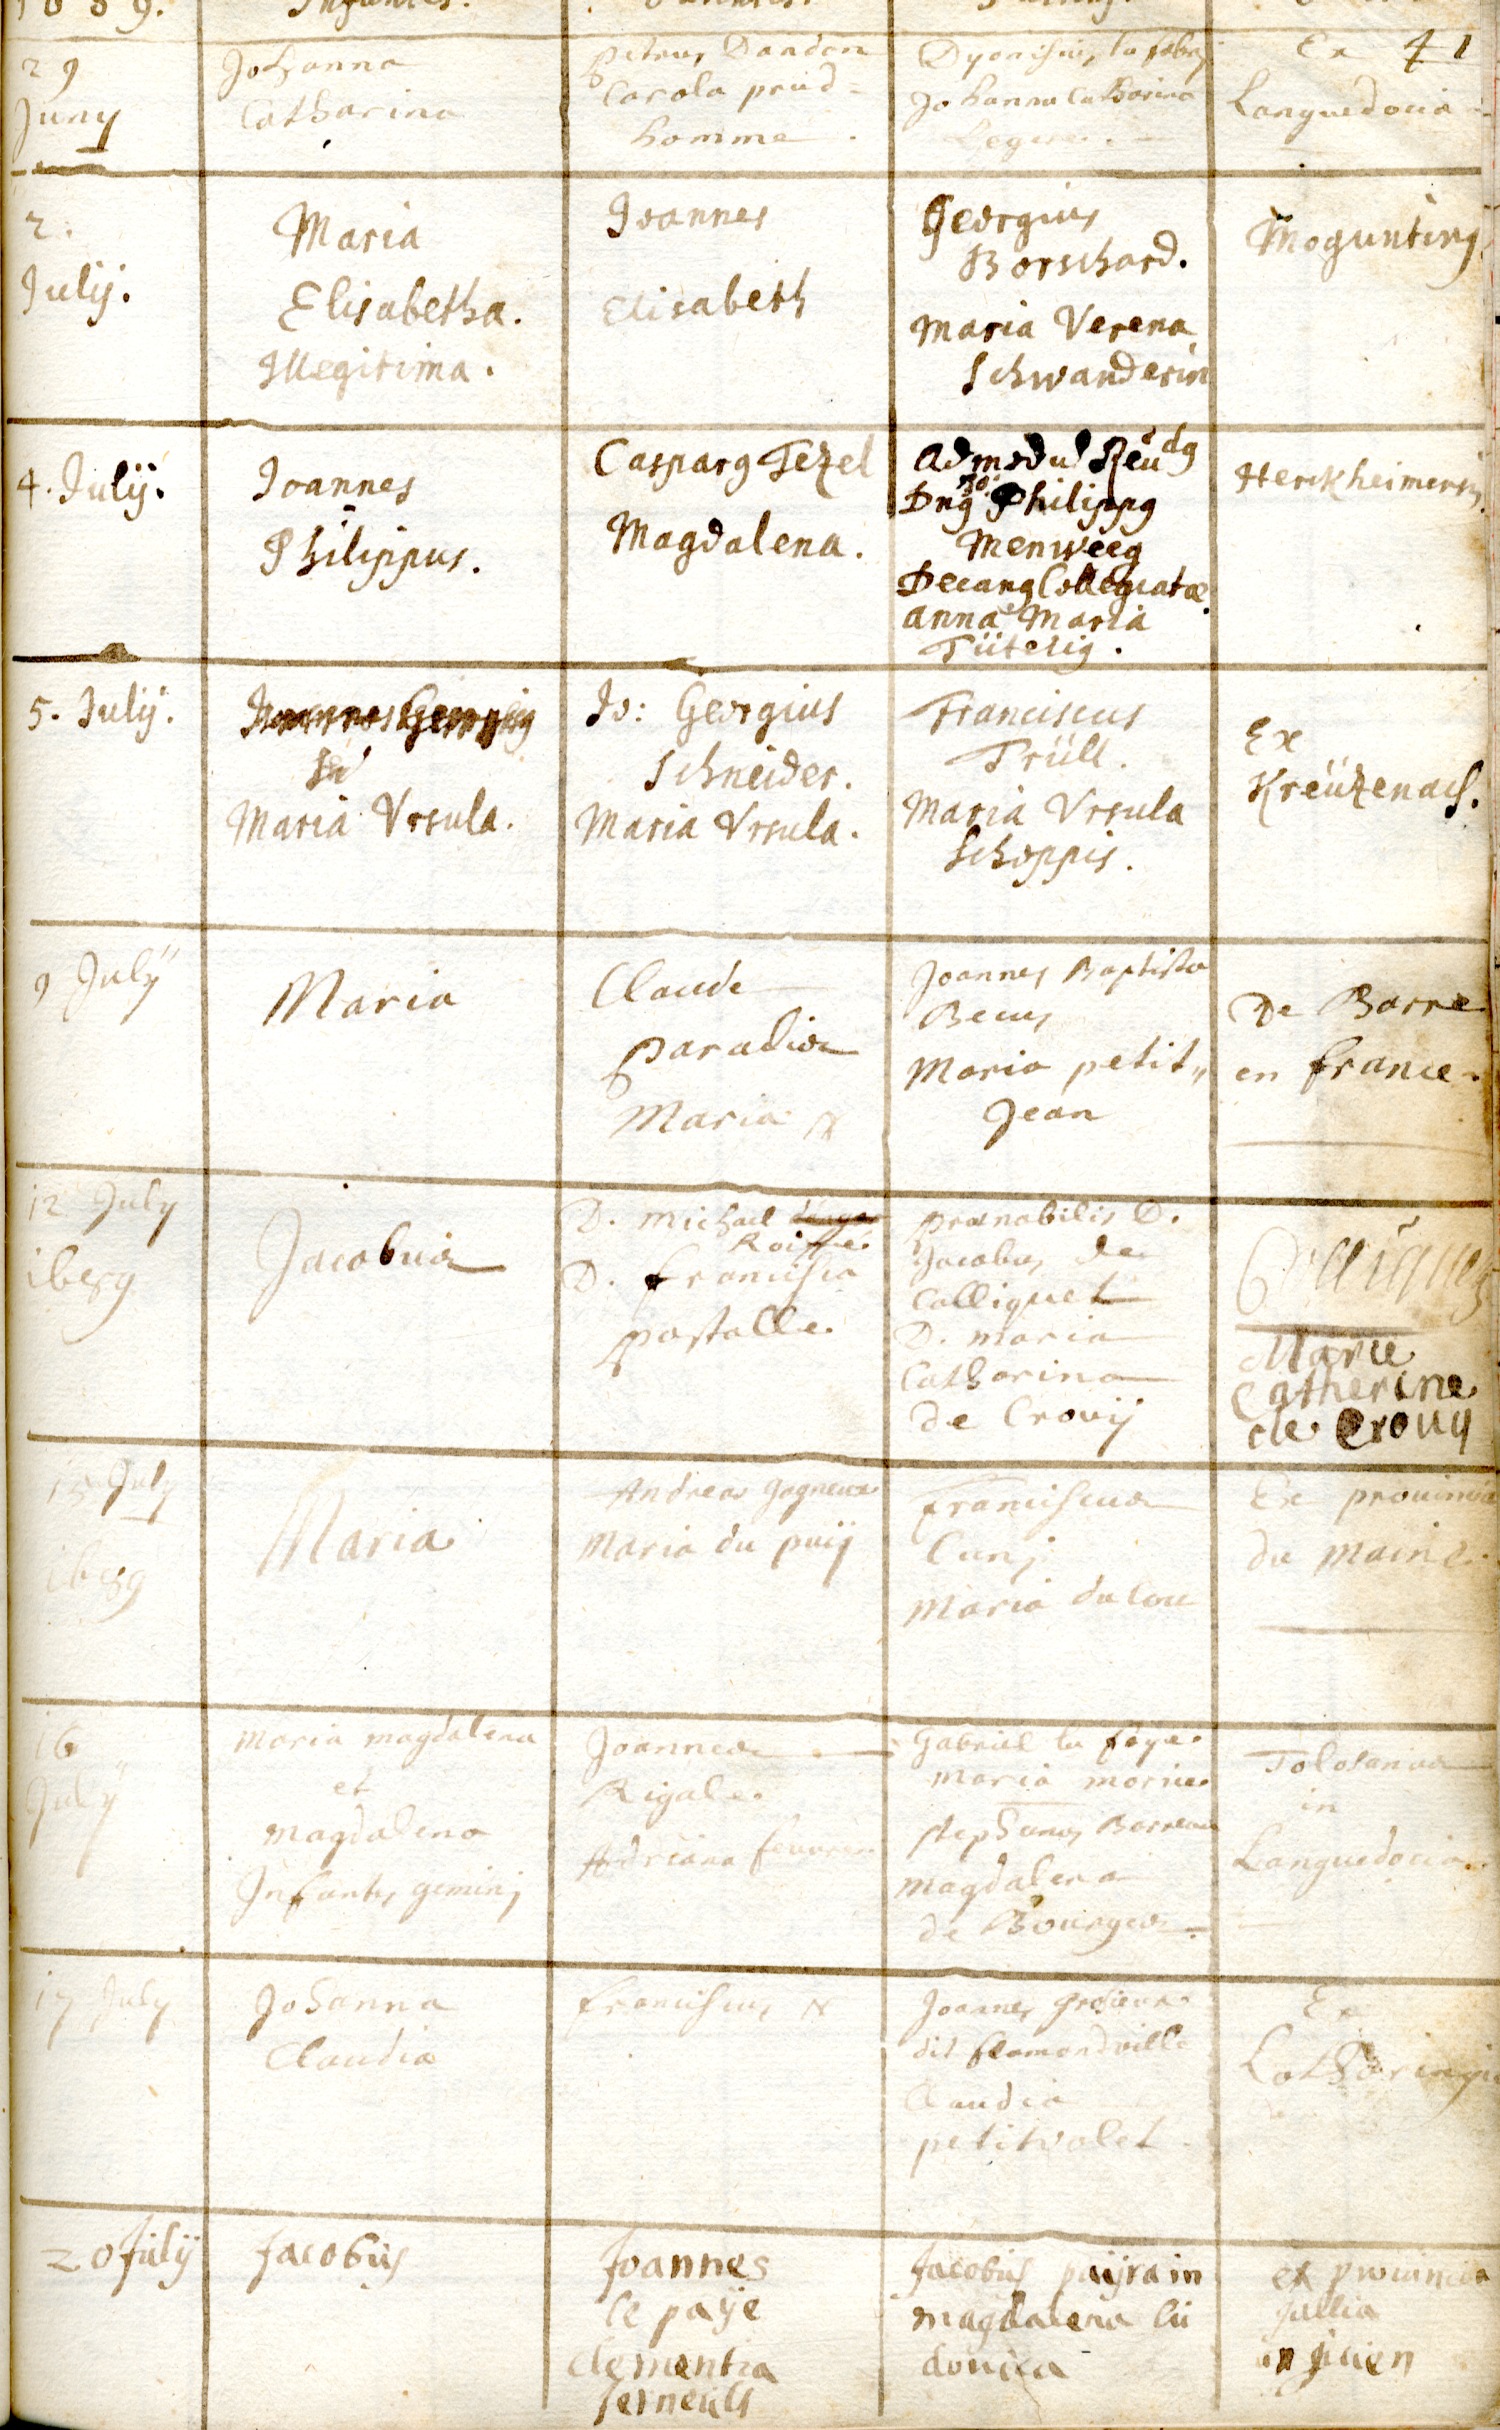 1689. Infantes.
29
Juny
Johanna
Catharina
Petrus Dandon
Carola prud-
homme.
Dyonisius la
Johanna Catharina
Ex 41
Languedocia
2.
Julij.
Maria
Elisabetha.
Illegitima.
Joannes
Elisabeth
Georgius
Borschard.
Maria Verena
Schwanderin
Mogunting
4. Julij.
Joannes
Philippus.
Casparg Tezel
Magdalena.
Admodu Reudg
Dng Philippg
Menweeg
Decang Collegiatæ.
Anna Maria
Tütelig.
Herckheimersis
5. Julij.
Maria Vrsula.
Jo: Georgius
Schneider.
Maria Vrsula.
Franciscus
Trüll.
Maria Vrsula
Schoppis.
Ex
Kreützenach.
9 July
Maria
Claude
paradis
Maria N
Joannes Baptista
Becus
Maria petit„
Jean
De Barre
en france.
12 July
1689
Jacobus
D. Michael
Roiffé
D. francisca
postalle.
prænobilis D.
Jacobus de
Colliquet
D. maria
Catharina
de Crouij
Colliquet
Marie
Catherine
de Crouy
15 July
1689
Maria
Andreas gagneux
Maria du puij
franciscus
Cunj
Maria du lou
Ex prouincia
du maine.
16
July
Maria magdalena
et
magdalena
Infantes geminj
Joannes
Rigale.
Adriana
Gabriel la faye.
Maria
stephanus
magdalena
de Bourges
Tolosanus
in
Languedocia.
17 July
Johanna
Claudia
franciscus N
Joannes
dit flamondville
Claudia
petitvalet
Ex
Lotharingia
20 Julij
Jacobus
Joannes
le paÿe
Clementia
serneuls
Jacobus puijrain
magdalena lu
douica
ex prouincia
gallia